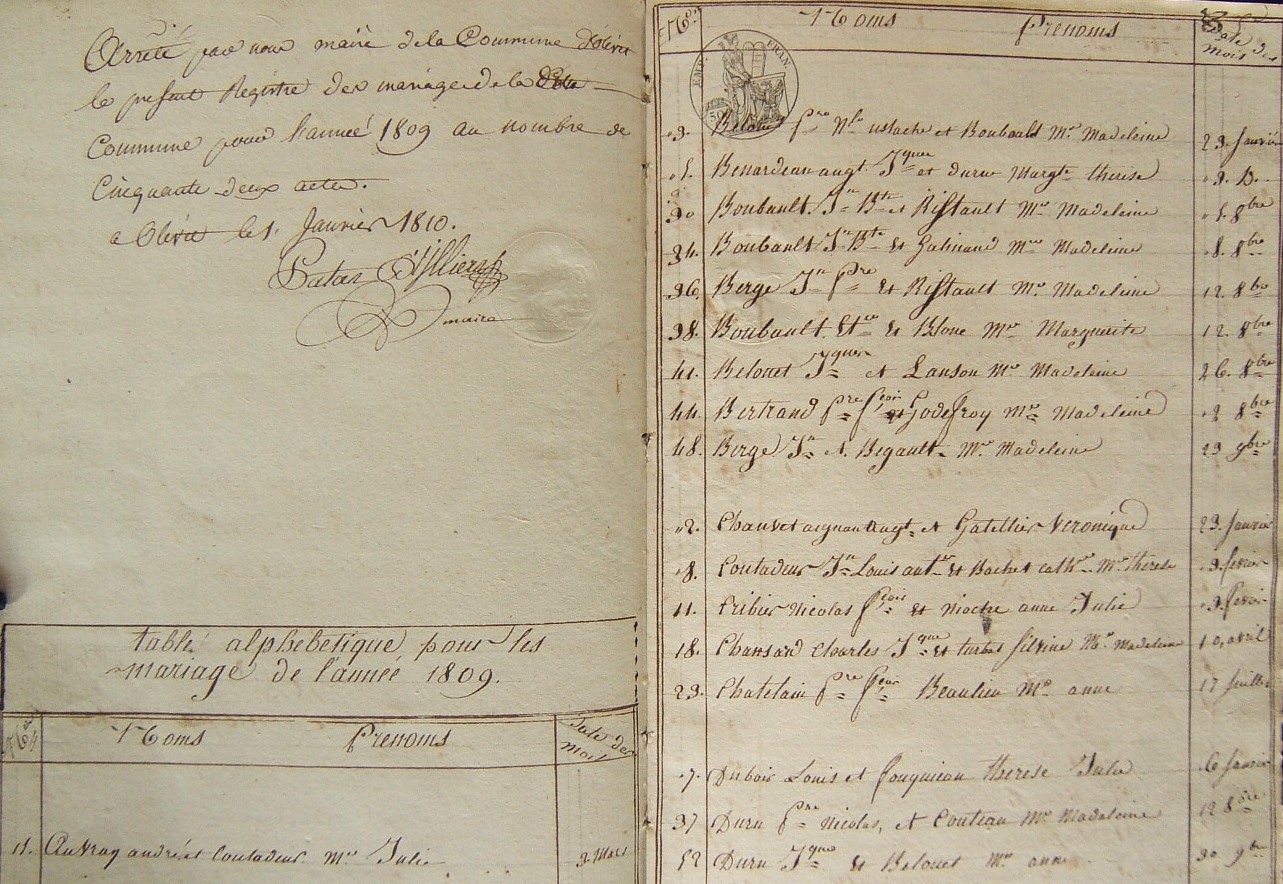 Arrêté par nous maire de la Commune d'olivet
le present Registre des mariage de la dite
Commune pour l'année 1809 au nombre de
Cinquante deux actes.
a Olivet le 1. Janvier 1810.
maire
table alphebetique pour les
mariage de l'année 1809.
Nos Noms Prenoms Date des mois
Auvray andré et Coutadeur Mie Julie 3 Mars
Nos Noms Prenoms Date des mois
EMP. FRAN.
3. Belouet Pre Nas ustache et Boubault Mie Madeleine 23 Janvier
5. Benardeau augt Jques et duru Margte therese 3. D.
30 Boubault Jn Bte et Riffault Mie Madeleine 5 8bre
34. Boubault Jn Bte et Galinand Mie Madeleine 8. 8bre
36. Berge Jn Pre Et Riffault Mie Madeleine 12. 8bre
38. Boubault Et Mie Marguerite 12. 8bre
41. Belouet Jques et Lanson Mie Madeleine 26. 8bre
44. Bertrand Pre fcois et Godefroy Mie Madeleine 8bre
48. Berge Jn et Begault Mie Madeleine 23 9bre
2. Chauvet aignan augt et Gatellier Veronique 23. Janvier
8. Coutadeur Jn Louis ant et Bachet cathe Mie therese 3. fevrier
11. Cribier Nicolas fcois et Mioche anne Julie 3. fevrier
18. Chansard Charles Jques et turbat silvine Mie Madeleine 10, avril
23. Chatelain Pre fcois Beaulieu Mie anne 17 Juillet
7. Dubois Louis et fouquieau therese Julie 6 Janvier
37 Duru Pre Nicolas, et Couteau Mie Madeleine 12 8bre
52 Duru Jques et Belouet Mie anne 30 9bre